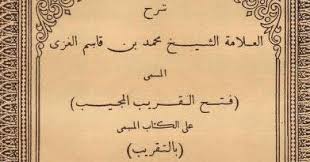 شرح
العلامة الشيخ محمد بن قاسم الغزى
المسمى
(فتح القريب المجيب)
على الكتاب المسمى
(بالتقريب)